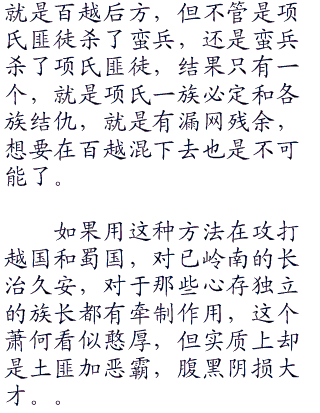 就是百越后方，但不管是项
氏匪徒杀了蛮兵，还是蛮兵
杀了项氏匪徒，结果只有一
个，就是项氏一族必定和各
族结仇，就是有漏网残余，
想要在百越混下去也是不可
能了。
如果用这种方法在攻打
越国和蜀国，对已岭南的长
治久安，对于那些心存独立
的族长都有牵制作用，这个
萧何看似憨厚，但实质上却
是土匪加恶霸，腹黑阴损大
才。。